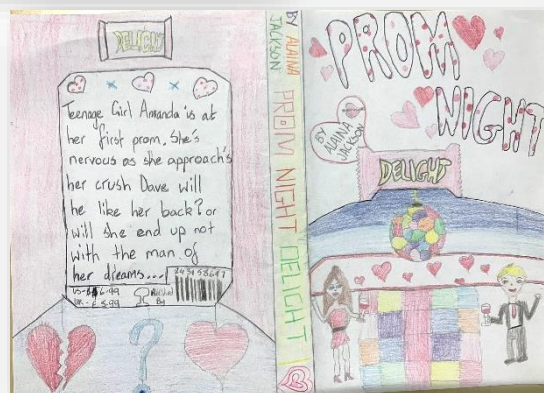 DELIGHT
Teenage Girl Amanda is at
her first prom. She's
nervous as she approach's
her crush Dave will
he like her back? or
will she end up not
with the man of
her dreams....
UK-£5.99
By
BY ALAINA
JACKSON
PROM NIGHT DELIGHT
PROM
NIGHT
BY
ALAINA
JACKSON
DELIGHT